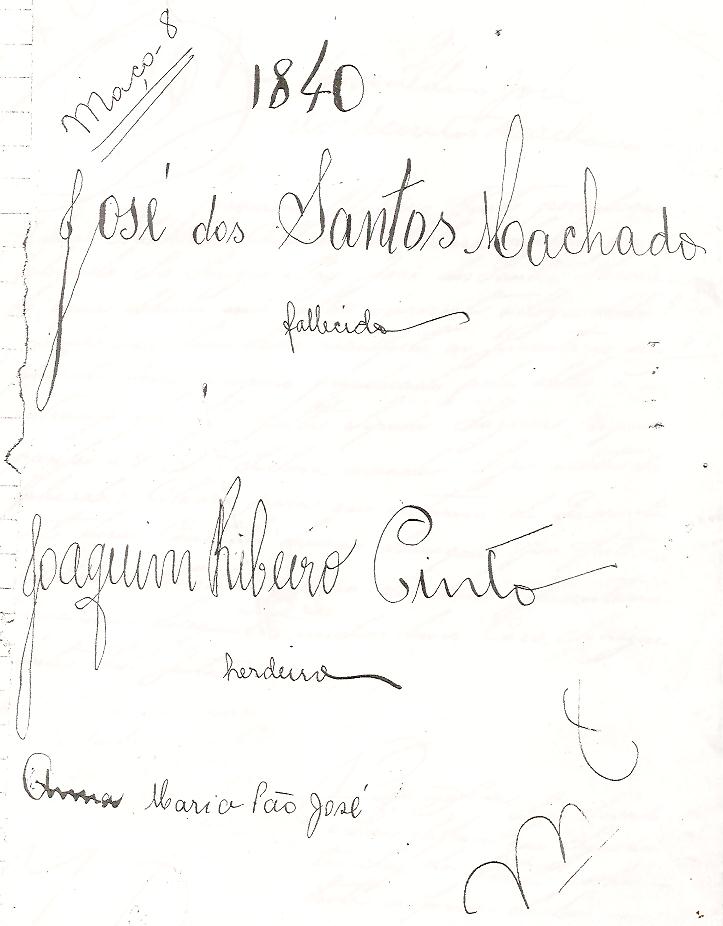 Maço-8
1840
José dos Santos Machado
fallecido
Joaquim Ribeiro Cinto
herdeiro
Anna Maria São José